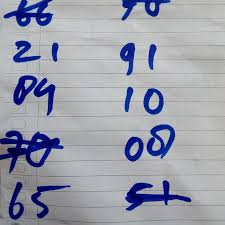 66 70
21 91
04 10
70 00
65 51